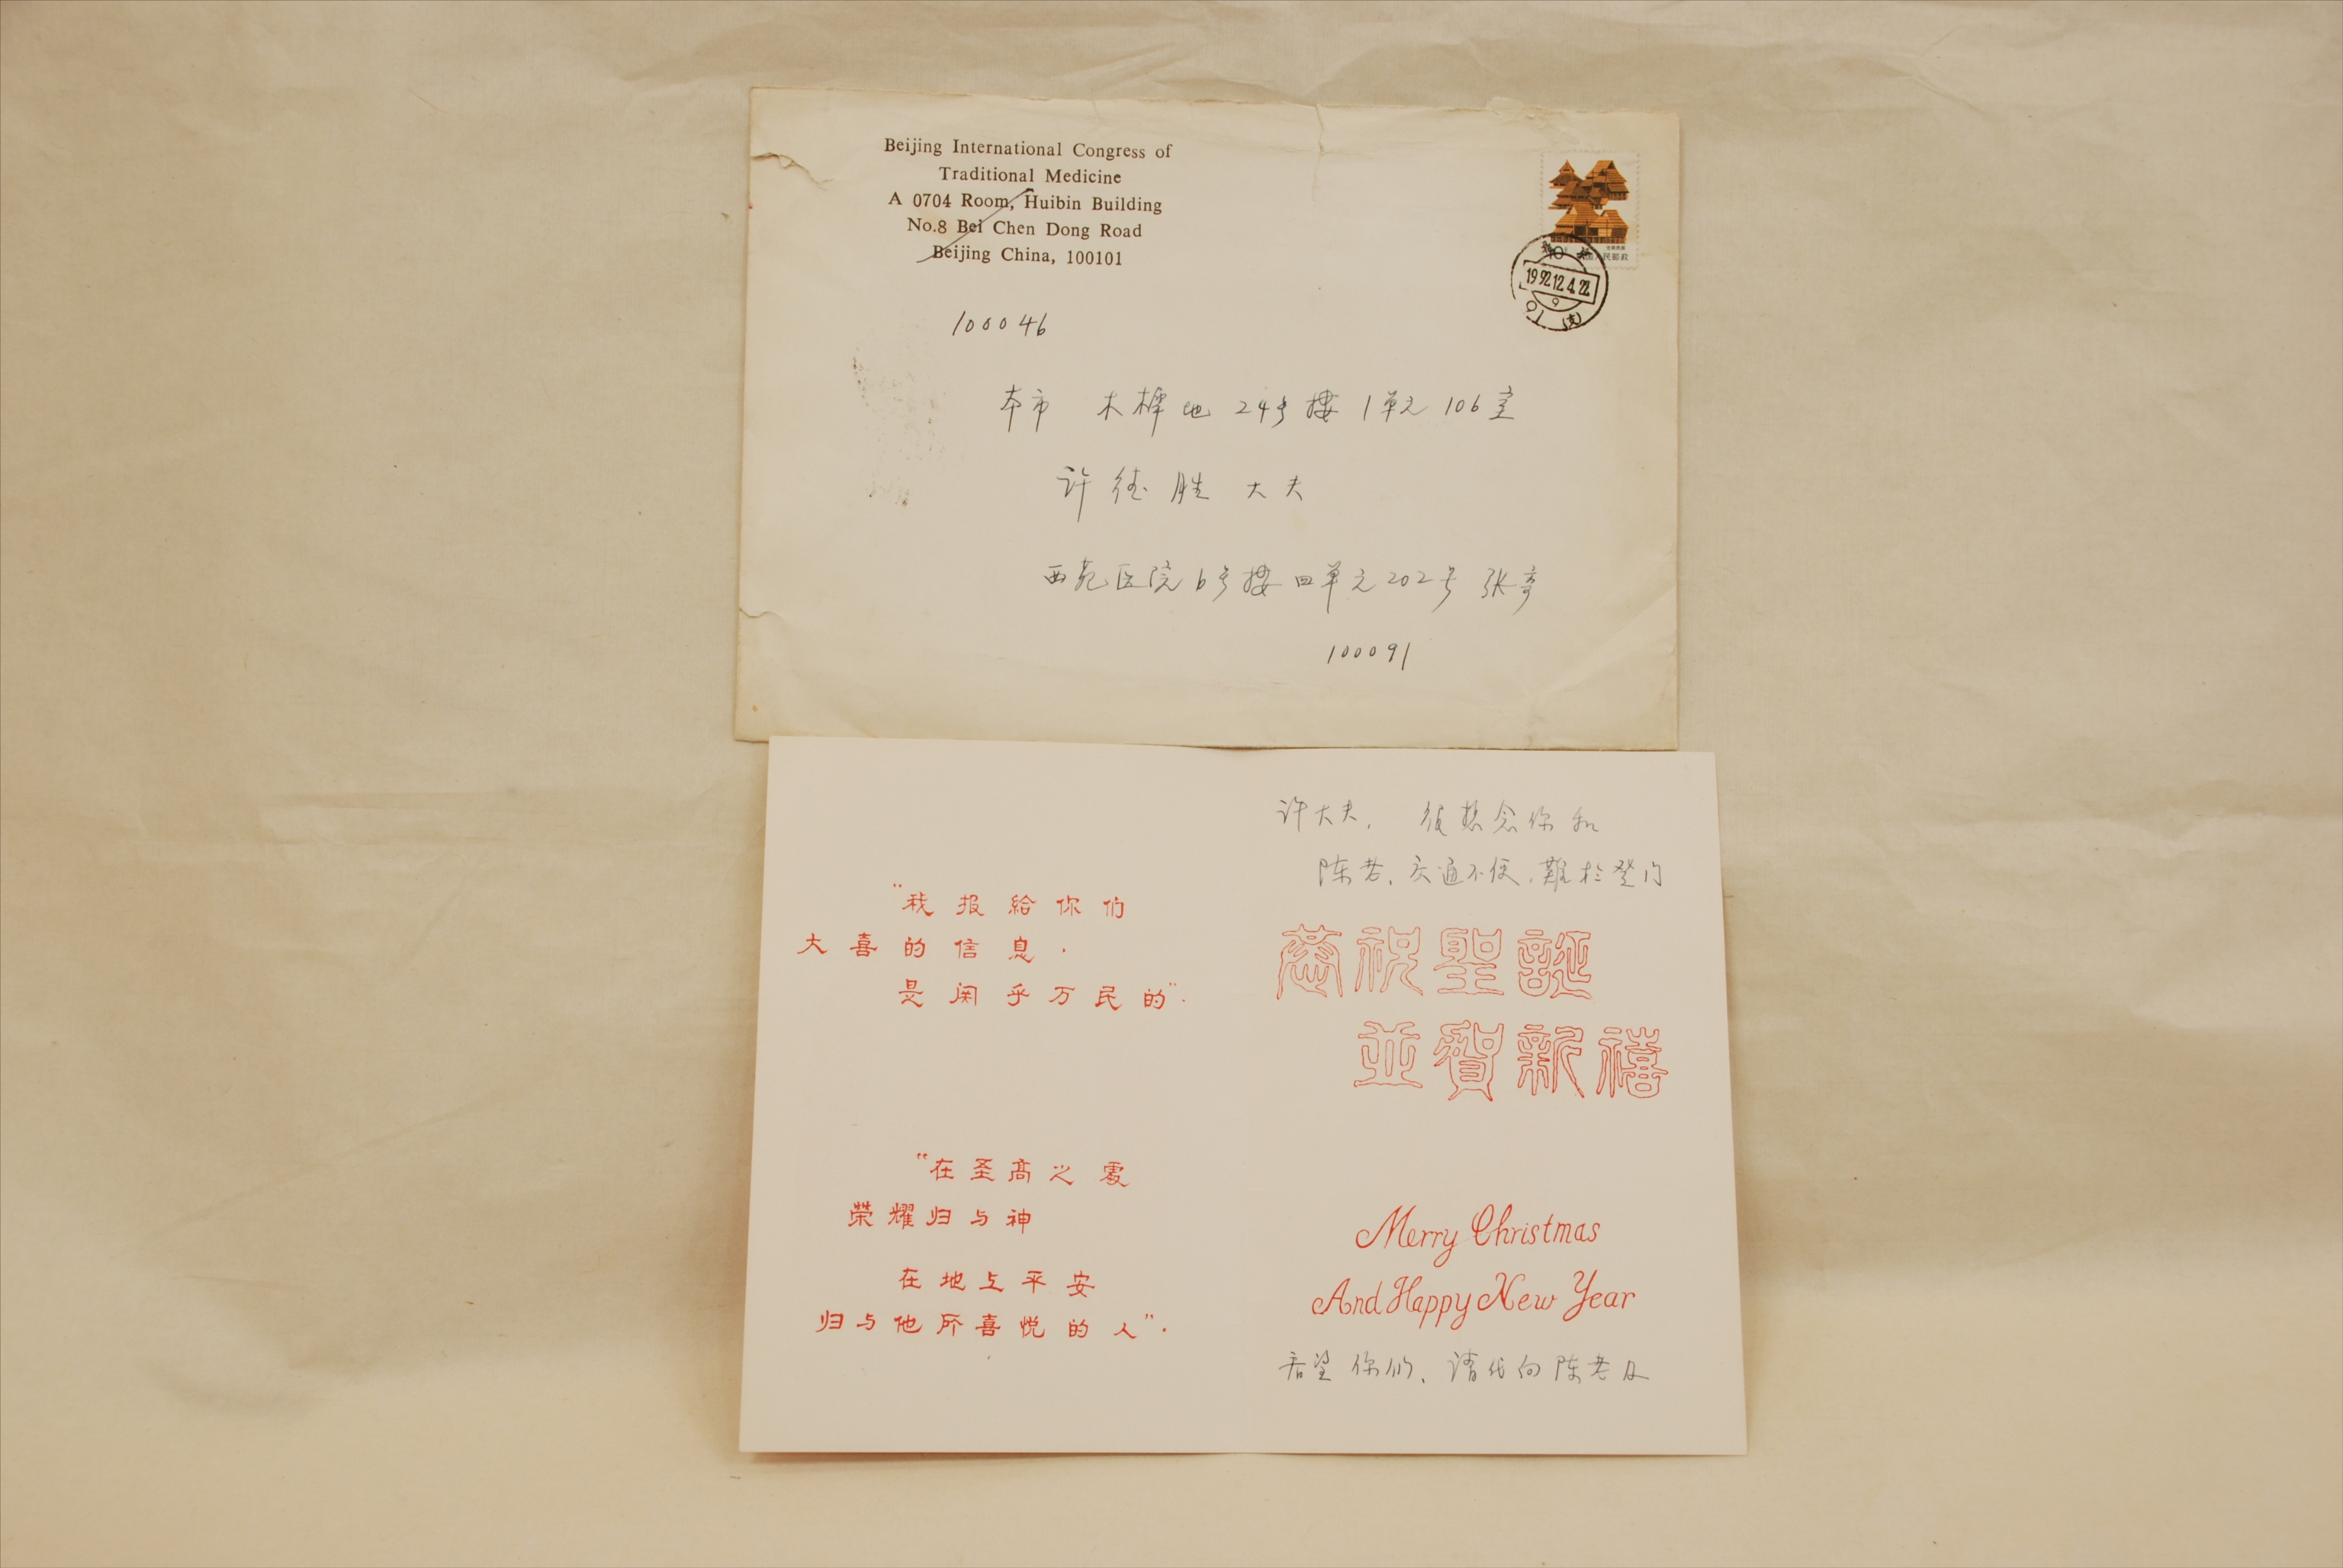 Beijing International Congress of
Traditional Medicine
A 0704 Room, Huibin Building
No.8 Bei Chen Dong Road
Beijing China, 100101
人民邮政
1992.12.4.22
100046
本市 木樨地 24号楼 1单元 106室
许德胜 大夫
西苑医院6号楼四单元202号 张
100091
许大夫, 很想念你和
陈老, 交通不便, 難於登门
恭祝聖誕
並賀新禧
Merry Christmas
And Happy New Year
看望你们、请代向陈老及
"我报給你们
大喜的信息·
是関乎万民的"·
"在圣高之處
荣耀归与神
在地上平安
归与他所喜悦的人"·